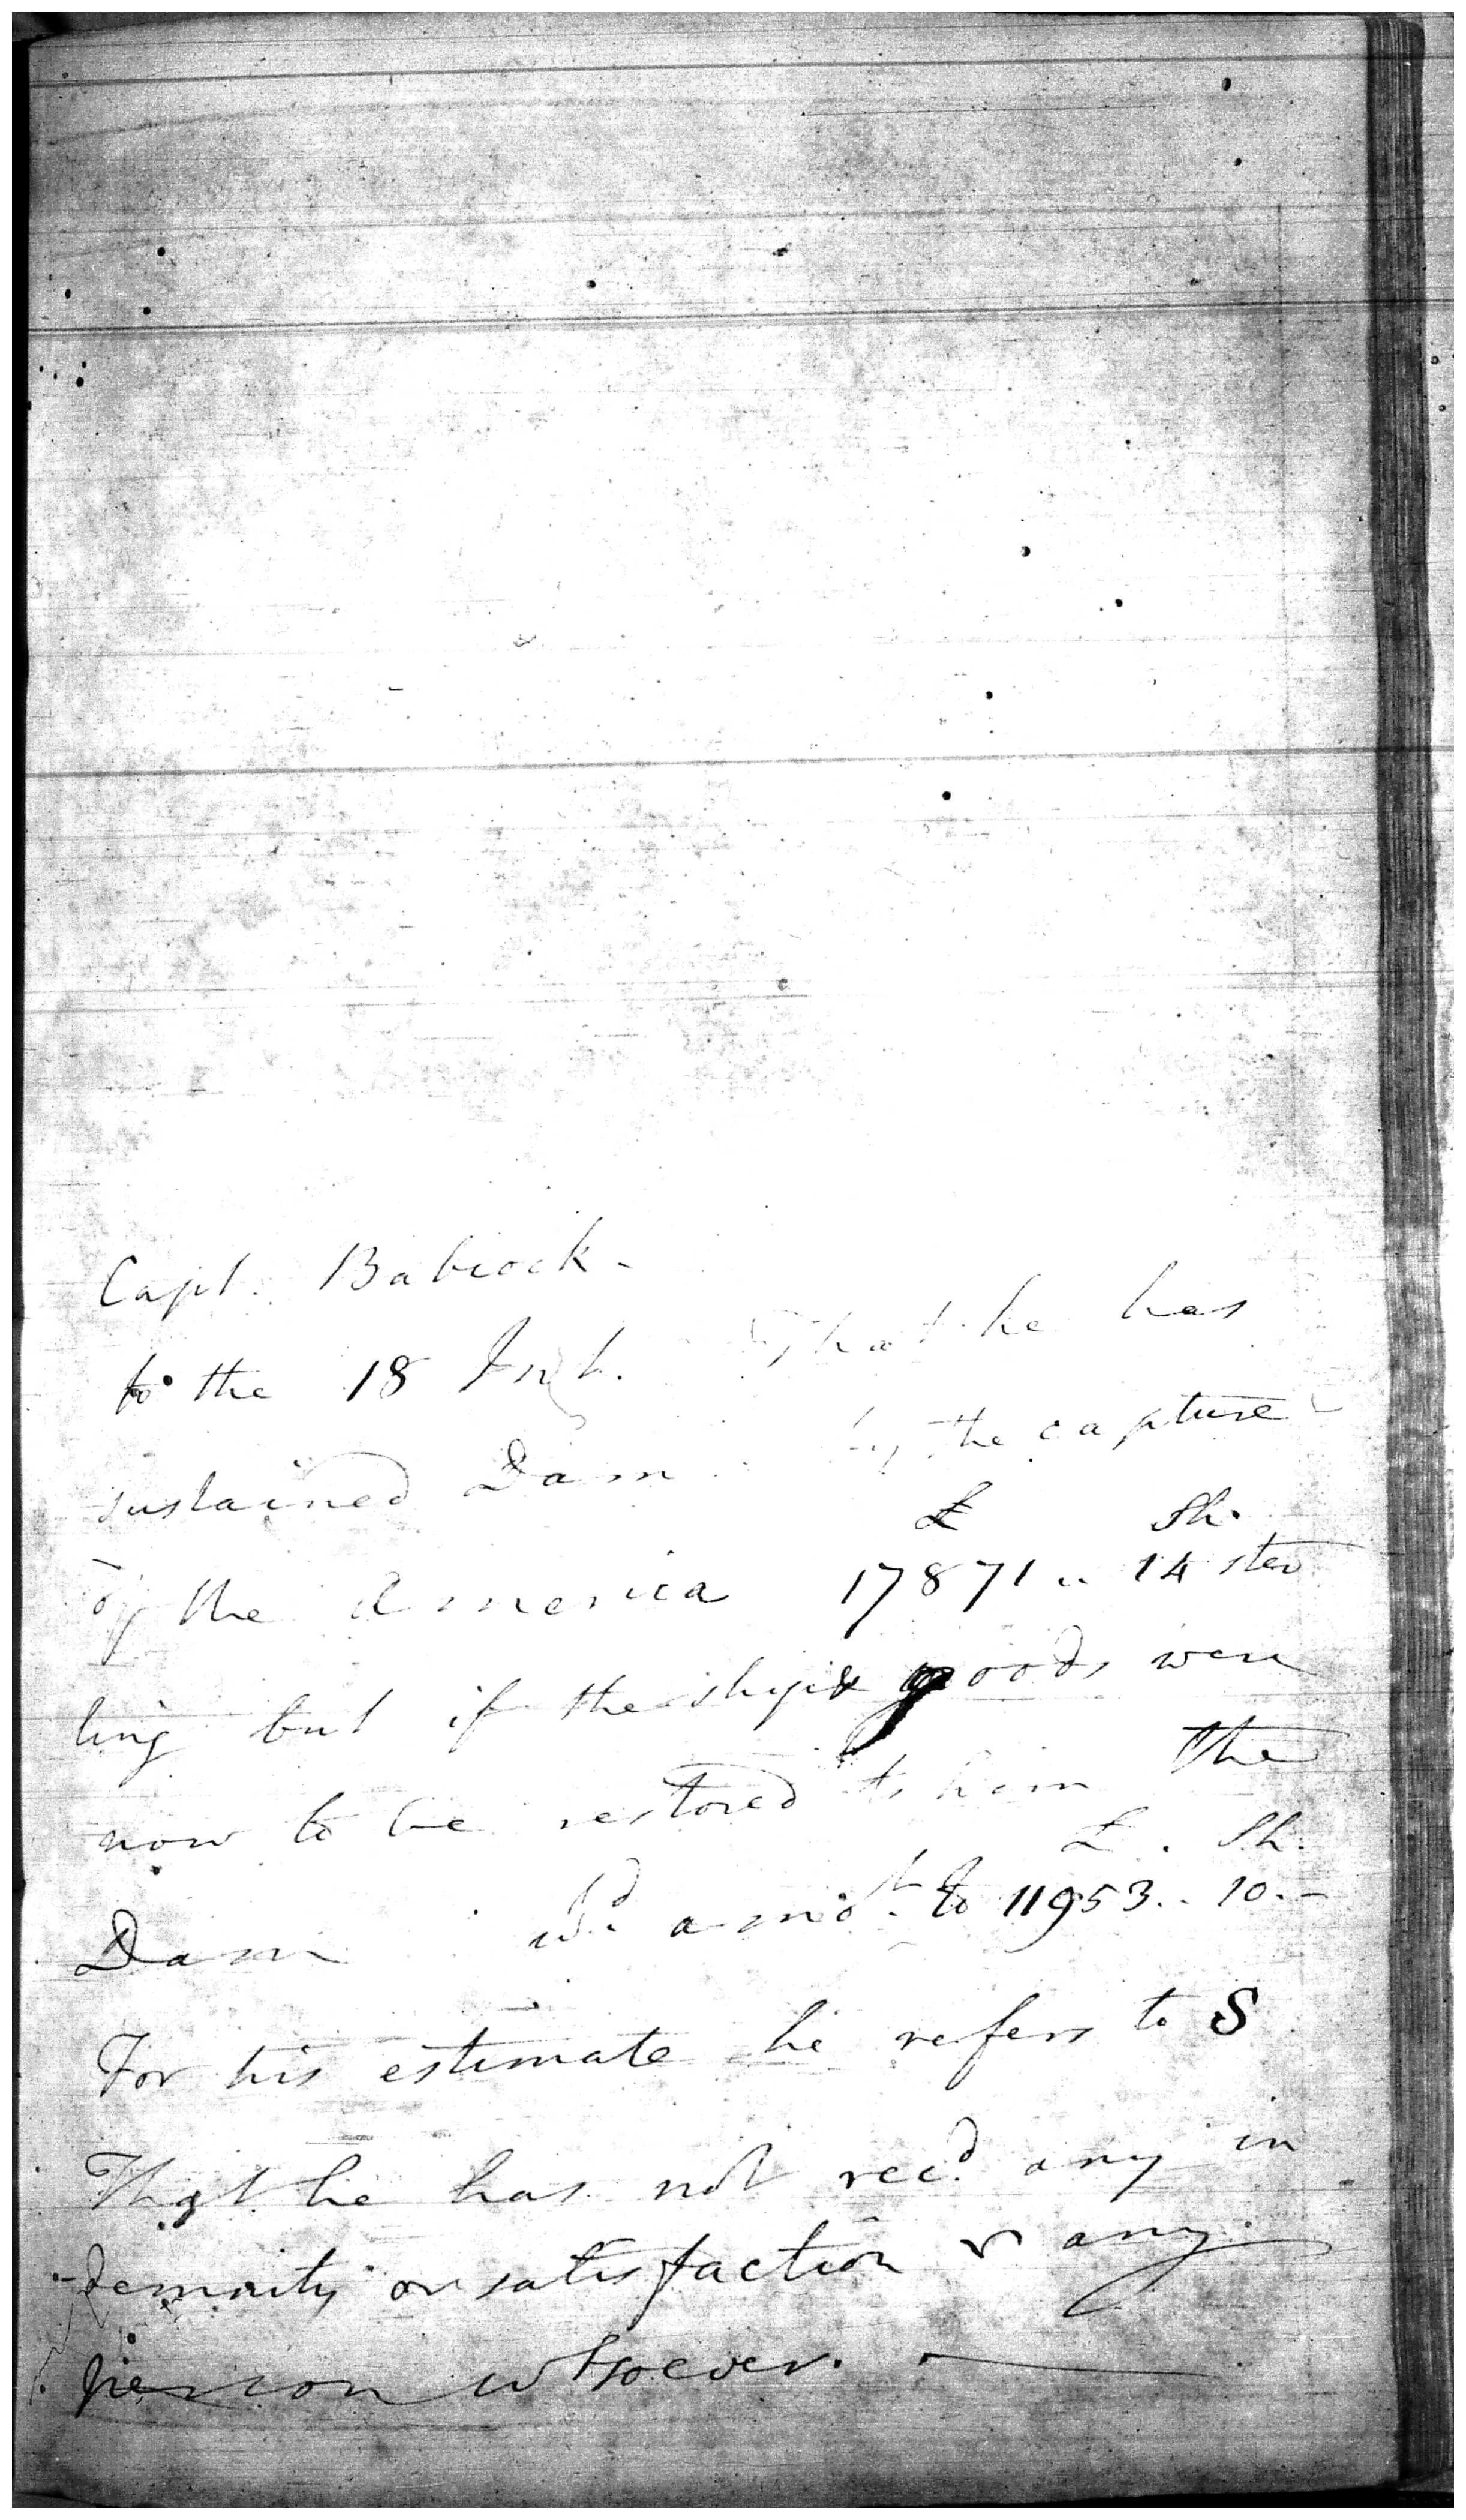 Capt. Babcock -
to the 18 Int. That he has
sustained Dam by the capture
£ Sh.
of the America 17871 .. 14 ster
ling but if the ship & goods were
now to be restored to him the
£ . Sh.
Dam wd. amot. to 11953 .. 10. -
For his estimate he refers to S
That he has not recd. any in
demnity or satisfaction any
person whsoever. -